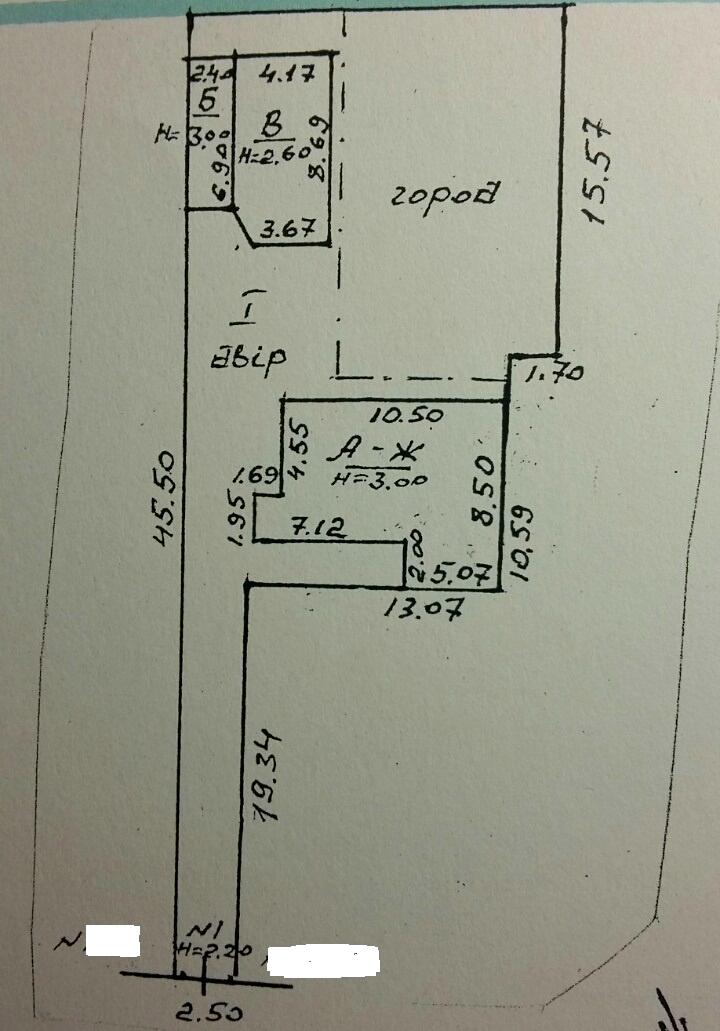 2.40
4.17
Б
H=
3.00
6.90
В
H=2.60
8.69
3.67
город
15.57
1.70
I
двір
10.50
А - Ж
H=3.00
4.55
1.69
1.95
7.12
2.00
5.07
8.50
10.59
13.07
45.50
19.34
N
N1
H=2.20
2.50